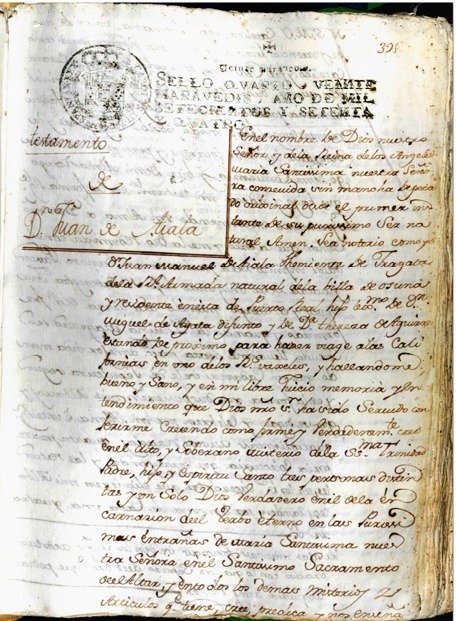 394
Veinte maravedis.
SELLO QVARTO, VEINTE
MARAVEDIS, AÑO DE MIL
SETECIENTOS Y SETENTA
Y QUATRO.
Testamento
de
Dn. Juan de Aiala
En el nombre de Dios nuestro
Señor, y de la Reina de los Angeles
Maria Santisima nuestra Seño-
ra concevida sin mancha de peca-
do original desde el primer ins-
tante de su purisimo Ser na-
tural, Amen. Sea notorio como yo
Dn. Juan Manuel de Aiala Theniente de Fragata
de la Rl. Armada natural de la Villa de Osuna
y residente en esta de Puerto Real, hijo lexmo. de Dn.
Miguel de Ayala difunto y de Da. Theresa de
estando de proximo para hazer viage a las Cali-
fornias en uno de los Rs. vaxeles, y hallandome
bueno y Sano, y en mi libre Juicio memoria y en-
tendimiento que Dios nro. Sr. ha sido Servido con-
cederme Creiendo como firme y verdaderamte. creo
en el Alto, y Soberano misterio de la SSma. Trinidad
Padre, hijo, y espiritu Santo tres personas distin-
tas y un Solo Dios verdadero en el de la En-
carnacion del Verbo eterno en las Purisi-
mas entrañas de Maria Santisima nues-
tra Señora en el Santisimo Sacramento
del Altar, y en todos los demas misterios y
Articulos qe. tiene, cree, predica y nos enseña